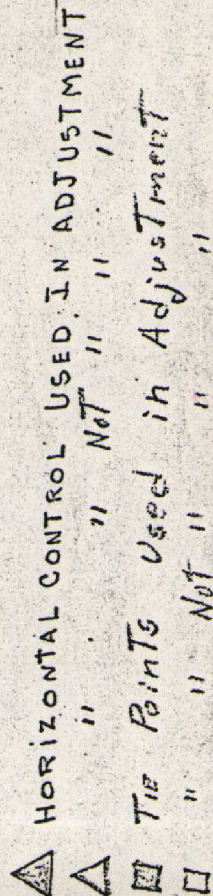 HORIZONTAL CONTROL USED IN ADJUSTMENT
" " NOT " " "
TIE POINTS Used in AdjusTmenT
" " NoT " " "